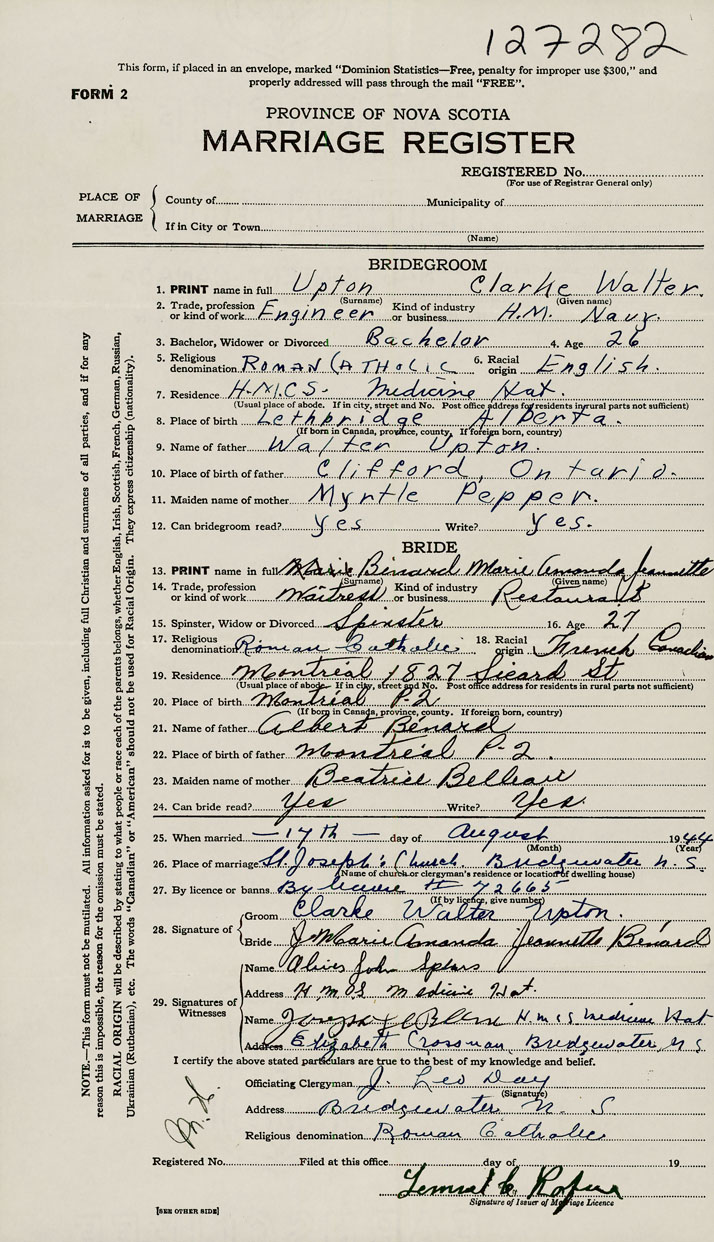 127282
This form, if placed in an envelope, marked "Dominion Statistics—Free, penalty for improper use $300," and
properly addressed will pass through the mail "FREE".
FORM 2
PROVINCE OF NOVA SCOTIA
MARRIAGE REGISTER
REGISTERED No.
(For use of Registrar General only)
PLACE OF MARRIAGE
County of Municipality of
If in City or Town
(Name)
BRIDEGROOM
1. PRINT name in full Upton Clarke Walter.
(Surname) (Given name)
2. Trade, profession or kind of work Engineer Kind of industry or business H.M. Navy.
3. Bachelor, Widower or Divorced Bachelor 4. Age 26
5. Religious denomination ROMAN CATHOLIC 6. Racial origin English.
7. Residence H.M.C.S. Medicine Hat.
(Usual place of abode. If in city, street and No. Post office address for residents in rural parts not sufficient)
8. Place of birth Lethbridge Alberta.
(If born in Canada, province, county. If foreign born, country)
9. Name of father Walter Upton.
10. Place of birth of father Clifford, Ontario.
11. Maiden name of mother Myrtle Pepper.
12. Can bridegroom read? Yes Write? Yes.
BRIDE
13. PRINT name in full Bénard Marie Amanda Jeannette
(Surname) (Given name)
14. Trade, profession or kind of work Waitress Kind of industry or business Restaurant
15. Spinster, Widow or Divorced Spinster 16. Age 27
17. Religious denomination Roman Catholic 18. Racial origin French Canadian
19. Residence Montréal 1827 Sicard St
(Usual place of abode. If in city, street and No. Post office address for residents in rural parts not sufficient)
20. Place of birth Montréal P-2
(If born in Canada, province, county. If foreign born, country)
21. Name of father Albert Bénard
22. Place of birth of father Montréal P-2.
23. Maiden name of mother Beatrice Belleau
24. Can bride read? Yes Write? Yes.
25. When married —17th— day of August 1944
(Month) (Year)
26. Place of marriage St. Joseph's Church Bridgewater N.S.
(Name of church or clergyman's residence or location of dwelling house)
27. By licence or banns By licence # 72665
(If by licence, give number)
28. Signature of
Groom Clarke Walter Upton.
Bride J. Marie Amanda Jeannette Bénard
29. Signatures of Witnesses
Name John Spears
Address H.M.C.S Medicine Hat.
Name Joseph H.M.C.S Medicine Hat
Address Elizabeth Crossman, Bridgewater, N S
I certify the above stated particulars are true to the best of my knowledge and belief.
Officiating Clergyman J. Leo Day
(Signature)
Address Bridgewater N. S
Religious denomination Roman Catholic
Registered No. Filed at this office day of 19
Lemuel C.
Signature of Issuer of Marriage Licence
[SEE OTHER SIDE]
NOTE.—This form must not be mutilated. All information asked for is to be given, including full Christian and surnames of all parties, and if for any
reason this is impossible, the reason for the omission must be stated.
RACIAL ORIGIN will be described by stating to what people or race each of the parents belongs, whether English, Irish, Scottish, French, German, Russian,
Ukrainian (Ruthenian), etc. The words "Canadian" or "American" should not be used for Racial Origin. They express citizenship (nationality).